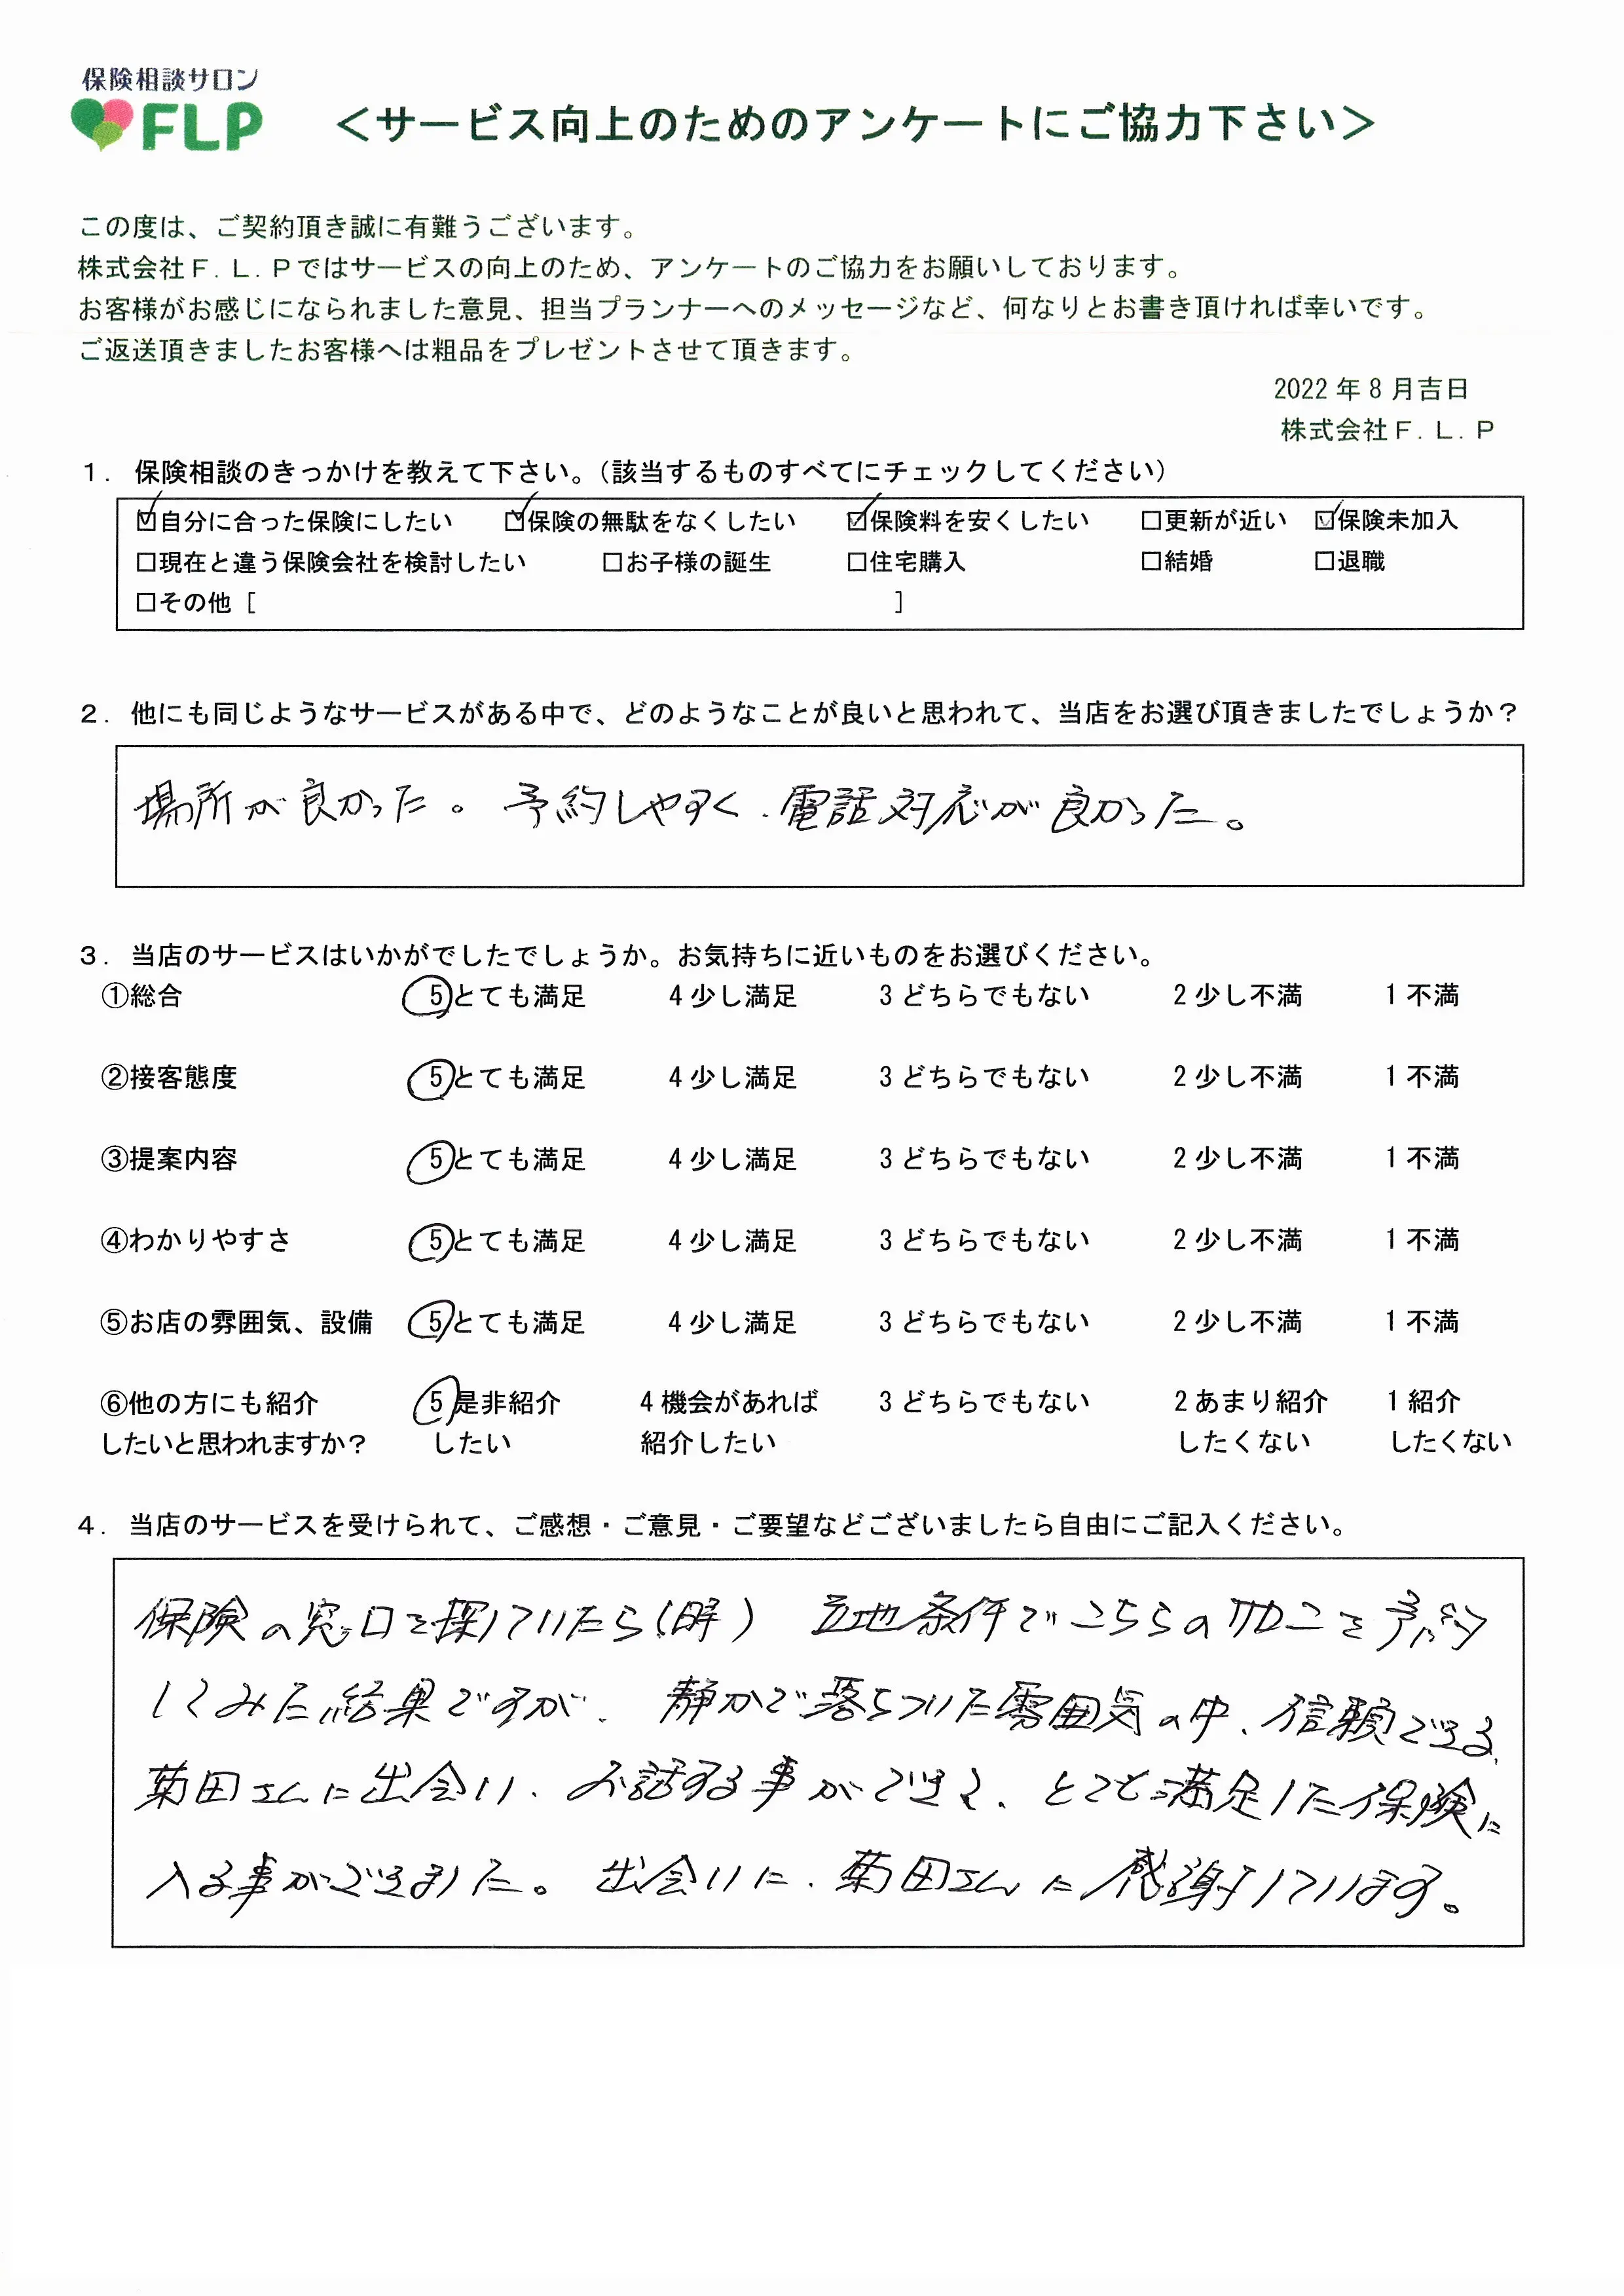 保険相談サロン
FLP
＜サービス向上のためのアンケートにご協力下さい＞
この度は、ご契約頂き誠に有難うございます。
株式会社Ｆ．Ｌ．Ｐではサービスの向上のため、アンケートのご協力をお願いしております。
お客様がお感じになられました意見、担当プランナーへのメッセージなど、何なりとお書き頂ければ幸いです。
ご返送頂きましたお客様へは粗品をプレゼントさせて頂きます。
2022 年 8 月吉日
株式会社Ｆ．Ｌ．Ｐ
１．保険相談のきっかけを教えて下さい。（該当するものすべてにチェックしてください）
☑自分に合った保険にしたい ☑保険の無駄をなくしたい ☑保険料を安くしたい □更新が近い ☑保険未加入
□現在と違う保険会社を検討したい □お子様の誕生 □住宅購入 □結婚 □退職
□その他 [ ]
２．他にも同じようなサービスがある中で、どのようなことが良いと思われて、当店をお選び頂きましたでしょうか？
場所が良かった。予約しやすく、電話対応が良かった。
３．当店のサービスはいかがでしたでしょうか。お気持ちに近いものをお選びください。
①総合 5 とても満足 4 少し満足 3 どちらでもない 2 少し不満 1 不満
②接客態度 5 とても満足 4 少し満足 3 どちらでもない 2 少し不満 1 不満
③提案内容 5 とても満足 4 少し満足 3 どちらでもない 2 少し不満 1 不満
④わかりやすさ 5 とても満足 4 少し満足 3 どちらでもない 2 少し不満 1 不満
⑤お店の雰囲気、設備 5 とても満足 4 少し満足 3 どちらでもない 2 少し不満 1 不満
⑥他の方にも紹介 5 是非紹介 4 機会があれば 3 どちらでもない 2 あまり紹介 1 紹介
したいと思われますか？ したい 紹介したい したくない したくない
４．当店のサービスを受けられて、ご感想・ご意見・ご要望などございましたら自由にご記入ください。
保険の窓口を探していたら(時) 立地条件でこちらのサロンを予約
してみた結果ですが、静かで落ちついた雰囲気の中、信頼できる、
菊田さんに出会い、お話する事ができて、とても満足した保険に
入る事ができました。出会いに、菊田さんに感謝しています。